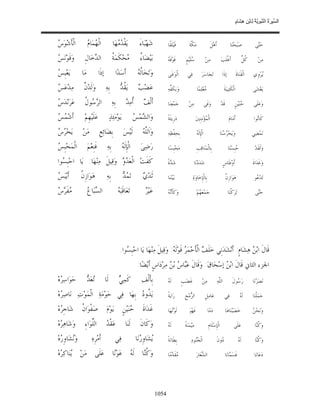 حَتَّى صَبَحْنَا أَهْلَ مَكَّةَ فَيْلَقًا شَهْبَاءَ يَقْدُمُهَا الْهُمَامُ الْأَشْوَسُ
مِنْ كُلِّ أَغْلَبَ مِنْ سُلَيْمٍ فَوْقَهُ بَيْضَاءُ مُحْكَمَةُ الدِّخَالِ وَقَوْنَسُ
يُرْوِي الْقَنَاةَ إذَا تَجَاسَرَ فِي الْوَغَى وَتَخَالُهُ أَسَدًا إذَا مَا يَعْبِسُ
يَغْشَى الْكَتِيبَةَ مُعْلِمًا وَبِكَفِّهِ عَضْبٌ يَقُدُّ بِهِ وَلَدْنٌ مِدْعَسُ
وَعَلَى حُنَيْنٍ قَدْ وَفَى مِنْ جَمْعِنَا أَلْفٌ أُمِدَّ بِهِ الرَّسُولُ عَرَنْدَسُ
كَانُوا أَمَامَ الْمُؤْمِنِينَ دَرِيئَةً وَالشَّمْسُ يَوْمَئِذٍ عَلَيْهِمْ أَشْمُسُ
نَمْضِي وَيَحْرُسُنَا الْإِلَهُ بِحِفْظِهِ وَاَللَّهُ لَيْسَ بِضَائِعٍ مَنْ يَحْرُسُ
وَلَقَدْ حُبِسْنَا بِالْمَنَاقِبِ مَحْبِسًا رَضِيَ الْإِلَهُ بِهِ فَنِعْمَ الْمَحْبِسُ
وَغَدَاةَ أَوْطَاسٍ شَدَدْنَا شَدَّةً كَفَتْ الْعَدُوَّ وَقِيلَ مِنْهَا يَا احْبِسُوا
تَدْعُو هَوَازِنُ بِالْإِخَاوَةِ بَيْنَنَا ثَدْيٌ تَمُدُّ بِهِ هَوَازِنُ أَيْبَسُ
حَتَّى تَرَكْنَا جَمْعَهُمْ وَكَأَنَّهُ عَيْرٌ تَعَاقَبُهُ السِّبَاعُ مُفَرَّسُ
قَالَ ابْنُ هِشَامٍ أَنْشَدَنِي خَلَفٌ الْأَحْمَرُ قَوْلَهُ وَقِيلَ مِنْهَا يَا احْبِسُوا
الجزء الثاني قَالَ ابْنُ إِسْحَاقَ وَقَالَ عَبَّاسُ بْنُ مِرْدَاسٍ أَيْضًا
نَصَرْنَا رَسُولَ اللَّهِ مِنْ غَضَبٍ لَهُ بِأَلْفِ كَمِيٍّ لَا تُعَدُّ حَوَاسِرُهُ
حَمَلْنَا لَهُ فِي عَامِلِ الرُّمْحِ رَايَةً يَذُودُ بِهَا فِي حَوْمَةِ الْمَوْتِ نَاصِرُهُ
وَنَحْنُ خَضَبْنَاهَا دَمًا فَهْوَ لَوْنُهَا غَدَاةَ حُنَيْنٍ يَوْمَ صَفْوَانُ شَاجِرُهُ
وَكُنَّا عَلَى الْإِسْلَامِ مَيْمَنَةً لَهُ وَكَانَ لَنَا عَقْدُ اللِّوَاءِ وَشَاهِرُهُ
وَكُنَّا لَهُ دُونَ الْجُنُودِ بِطَانَةً يُشَاوِرُنَا فِي أَمْرِهِ وَنُشَاوِرُهُ
دَعَانَا فَسَمَّانَا الشِّعَارَ مُقَدَّمًا وَكُنَّا لَهُ عَوْنًا عَلَى مَنْ يُنَاكِرُهُ
1054